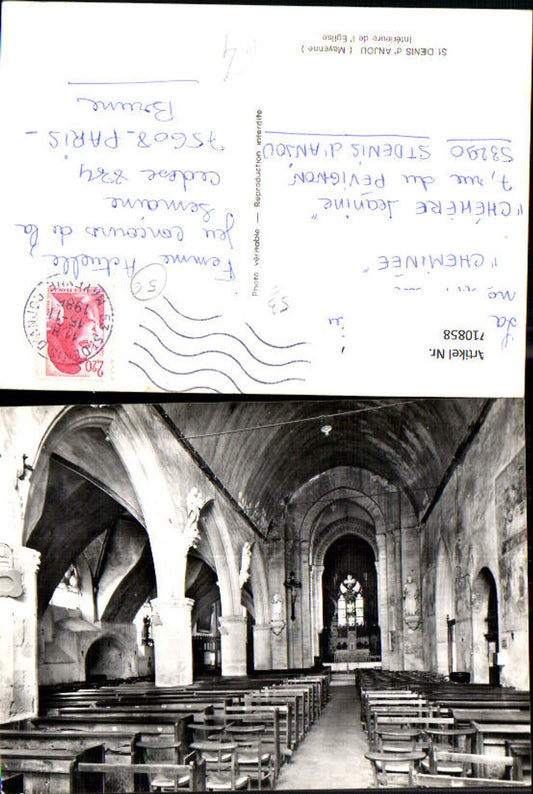 St DENIS d'ANJOU ( Mayenne )
Intérieure de l'Eglise
La
"CHEMINÉE"
"CHÉHÈRE Jeanine"
7, rue du PEVIGNON
53290 ST DENIS d'ANJOU
Photo véritable — Reproduction interdite
53 ST DENIS D'ANJOU
MAYENNE
2,20
Femme Actuelle
Jeu concours de la
semaine
Cedex 774
75608 - PARIS -
Brune
Artikel Nr.
710858